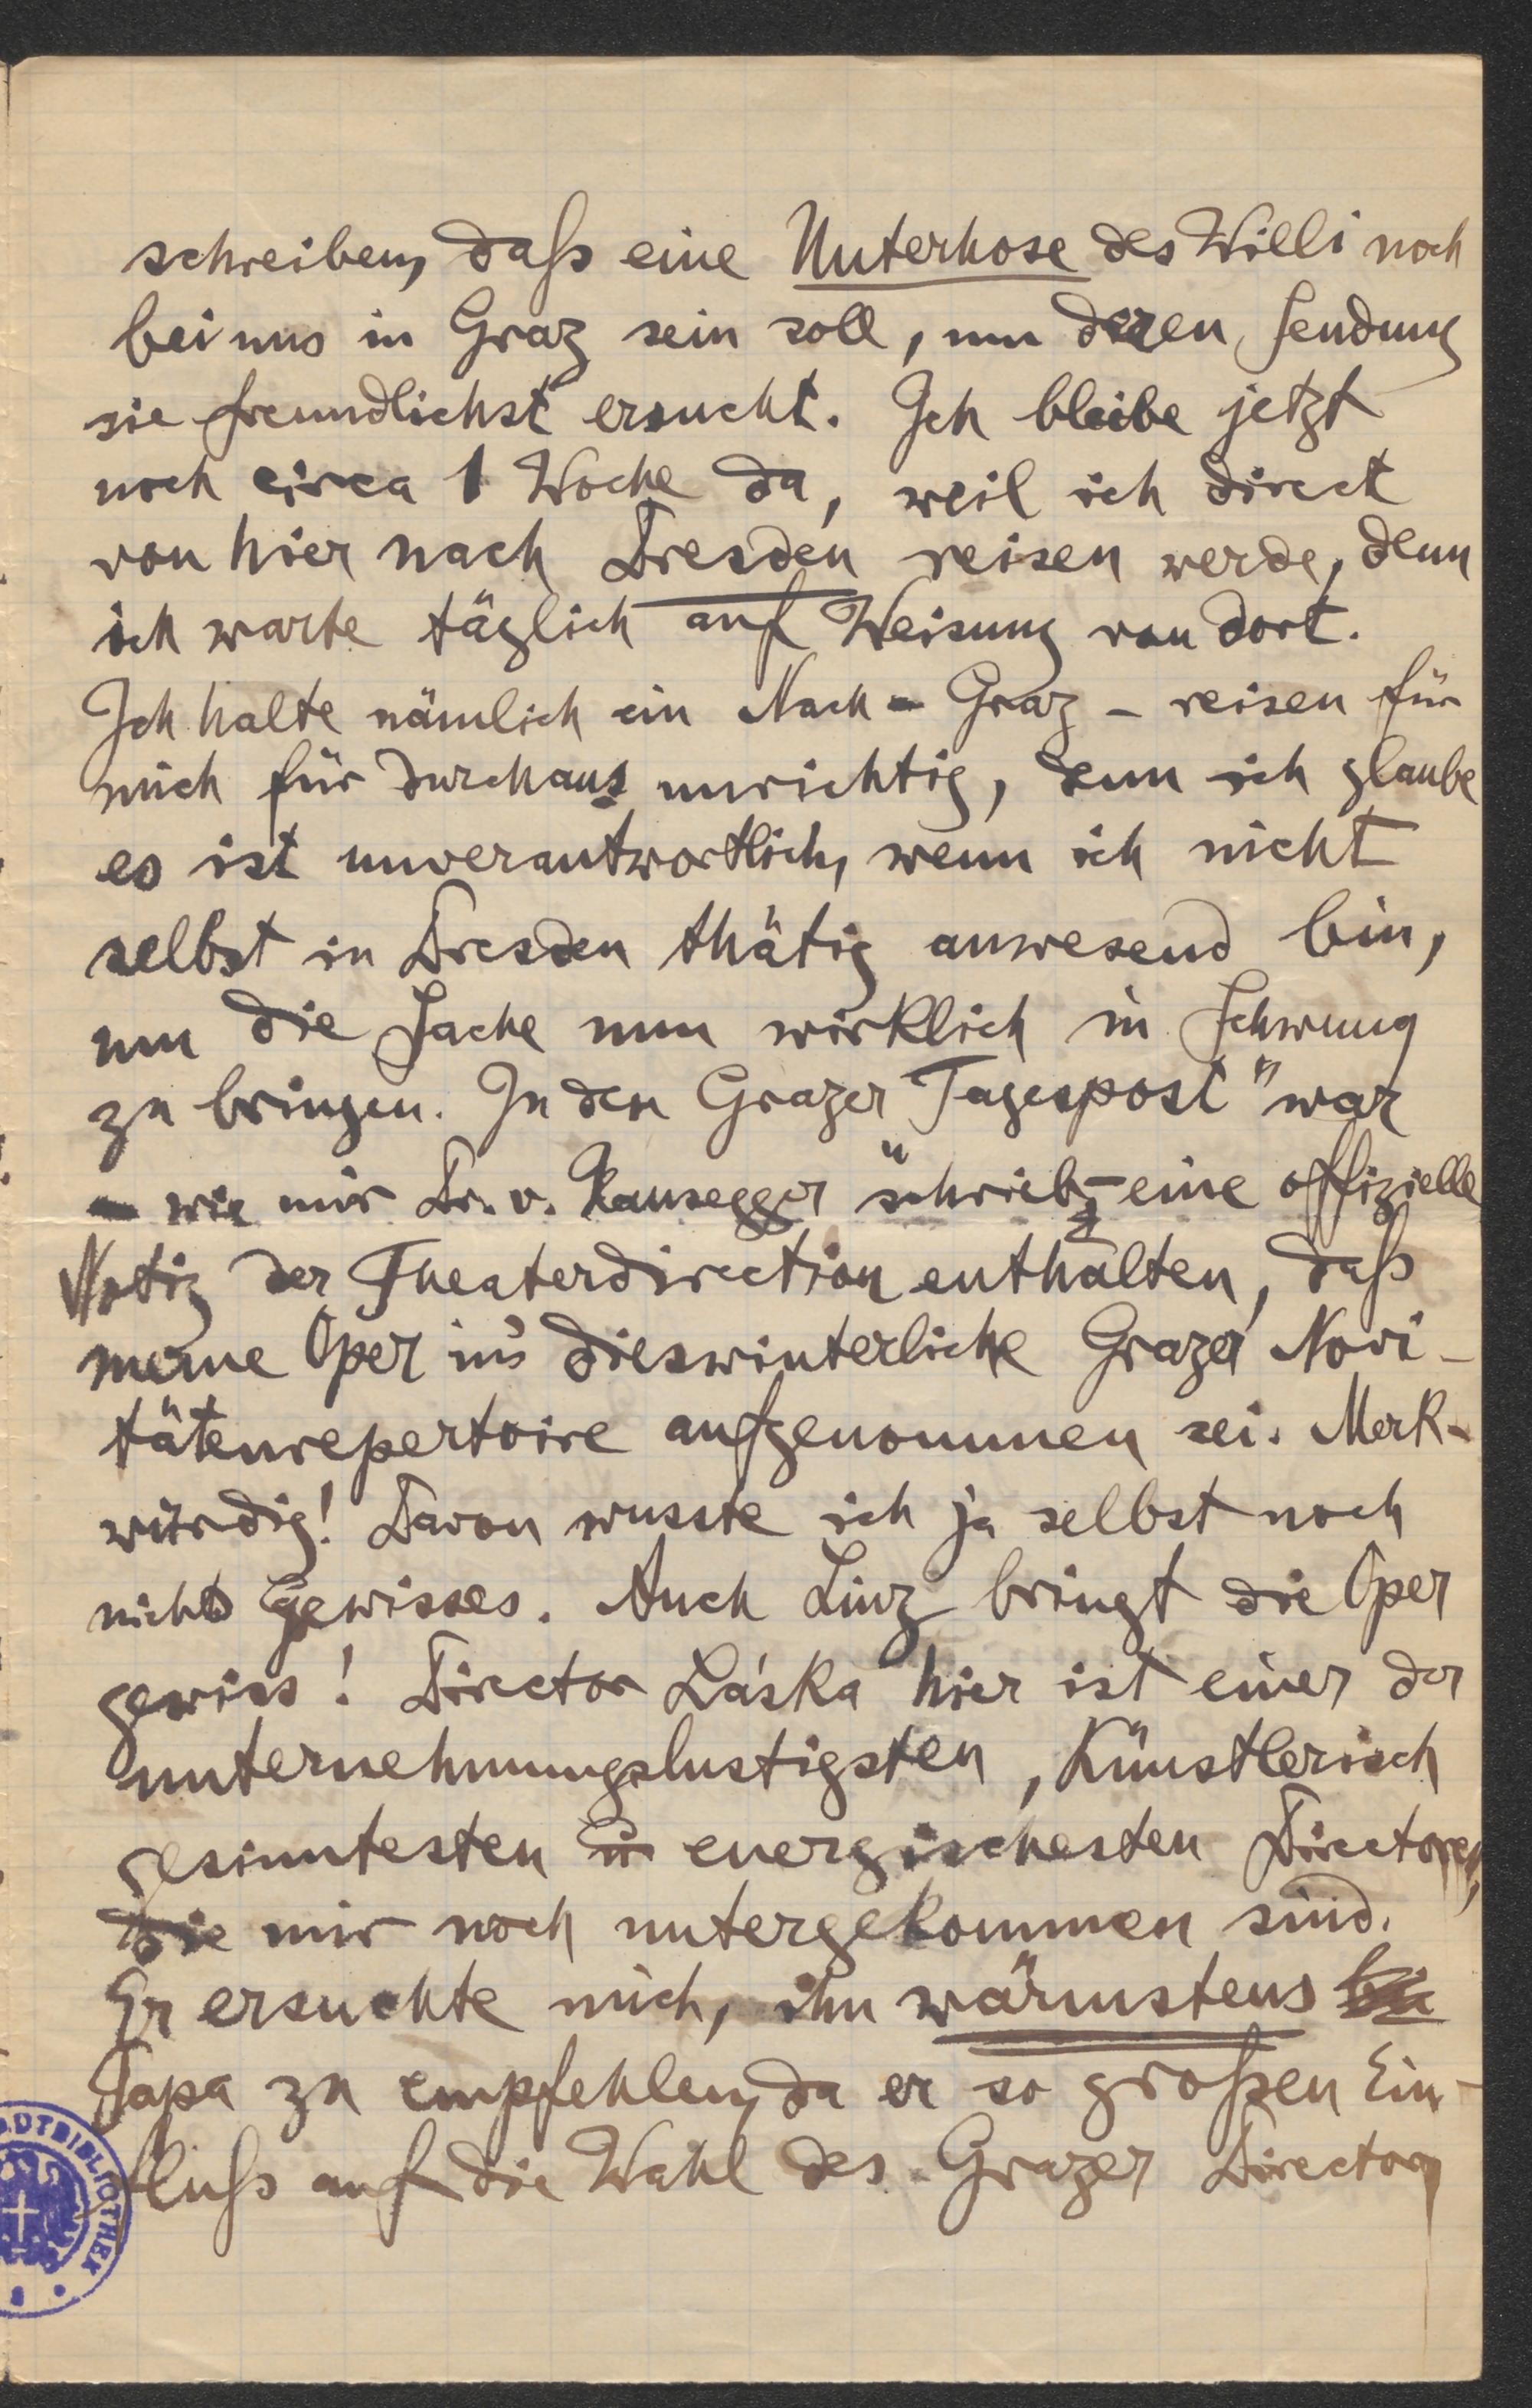 schreiben, daß eine Unterhose des Willi noch
bei uns in Graz sein soll, um deren Sendung
sie freundlichst ersucht. Ich bleibe jetzt
noch circa 1 Woche da, weil ich direct
von hier nach Dresden reisen werde, denn
ich warte täglich auf Weisung von dort.
Ich halte nämlich ein Nach - Graz - reisen für
mich für durchaus unrichtig, denn ich glaube
es ist unverantwortlich, wenn ich nicht
selbst in Dresden thätig anwesend bin,
um die Sache nun wirklich in Schwung
zu bringen. In der Grazer "Tagespost" war
- wie mir Dr. v. Hausegger schrieb - eine offizielle
Notiz der Theaterdirection enthalten, daß
meine Oper in's dieswinterliche Grazer Novi-
tätenrepertoire aufgenommen sei. Merk-
würdig! Davon wusste ich ja selbst noch
nichts gewisses. Auch Linz bringt die Oper
gewiss! Director Láska hier ist einer der
unternehmungslustigsten, künstlerisch
gesinntesten u energischesten Directoren,
die mir noch untergekommen sind.
Er ersuchte mich, ihn wärmstens
Papa zu empfehlen, da er so großen Ein-
fluß auf die Wahl des Grazer Directors
DTBIBLIOTHEK